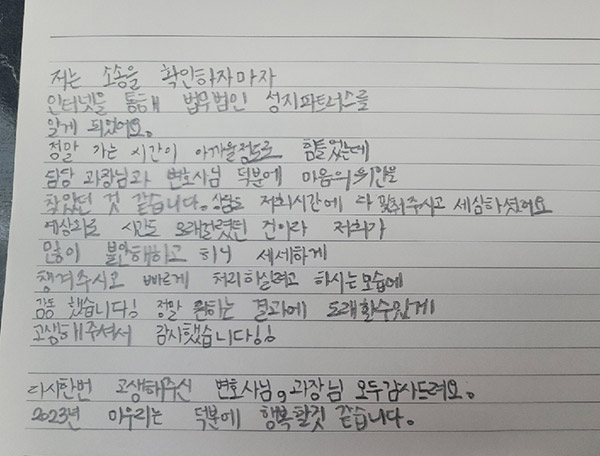 저는 소송을 확인하자마자
인터넷을 통해 법무법인 성지파트너스를
알게 되었어요.
정말 가는 시간이 아까울정도로 힘들었는데
담당 과장님과 변호사님 덕분에 마음의 위안을
찾았던 것 같습니다. 상담도 저희시간에 다 맞춰주시고 세심하셨어요
예상외로 시간도 오래걸렸던 건이라 저희가
많이 불안해하고 하니 세세하게
챙겨주시고 빠르게 처리하실려고 하시는모습에
감동 했습니다! 정말 원하는 결과에 도래할수있게
고생해주셔서 감사했습니다!!
다시한번 고생해주신 변호사님, 과장님 모두감사드려요.
2023년 마무리는 덕분에 행복할것 같습니다.